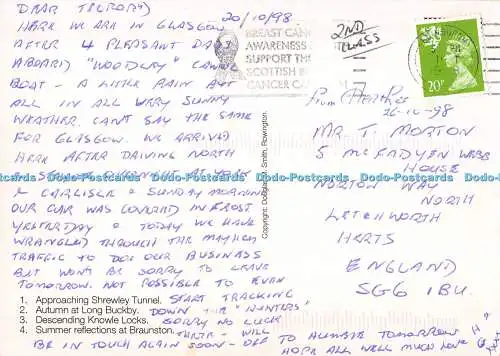 DEAR TREVORY 20/10/98
HERE WE ARE IN GLASGOW
AFTER 4 PLEASANT DAYS
ABOARD "WOODLEY" CANAL
BOAT - A LITTLE RAIN BUT
ALL IN ALL VERY SUNNY
WEATHER. CAN'T SAY THE SAME
FOR GLASGOW. WE ARRIVED
HERE AFTER DRIVING NORTH
& CARLISLE & SUNDAY MORNING
OUR CAR WAS COVERED IN FROST
YESTERDAY & TODAY WE HAVE
WRANGLED THROUGH THE MAYHEM
TRAFFIC TO DO OUR BUSINESS
BUT WON'T BE SORRY TO LEAVE
TOMORROW. NOT POSSIBLE TO EVEN
START TRACKING
DOWN THE "HUNTERS"
SORRY NO LUCK
THERE - WILL
BE IN TOUCH AGAIN SOON - OFF TO AUSSIE TOMORROW
HOPE ALL WELL MUCH LOVE
1. Approaching Shrewley Tunnel.
2. Autumn at Long Buckby.
3. Descending Knowle Locks.
4. Summer reflections at Braunston.
Copyright: Douglas Smith, Rowington.
BREAST CANCER
AWARENESS
SUPPORT THE
SCOTTISH
CANCER
2ND
CLASS
20P
From Heather
26-10-98
MR T. MORTON
5 MCFADYEN WEBB
HOUSE
NORTON WAY
NORTH
LETCHWORTH
HERTS
ENGLAND
SG6 1BU.
Dodo-Postcards Dodo-Postcards Dodo-Postcards Dodo-Postcards Dodo-Postcards